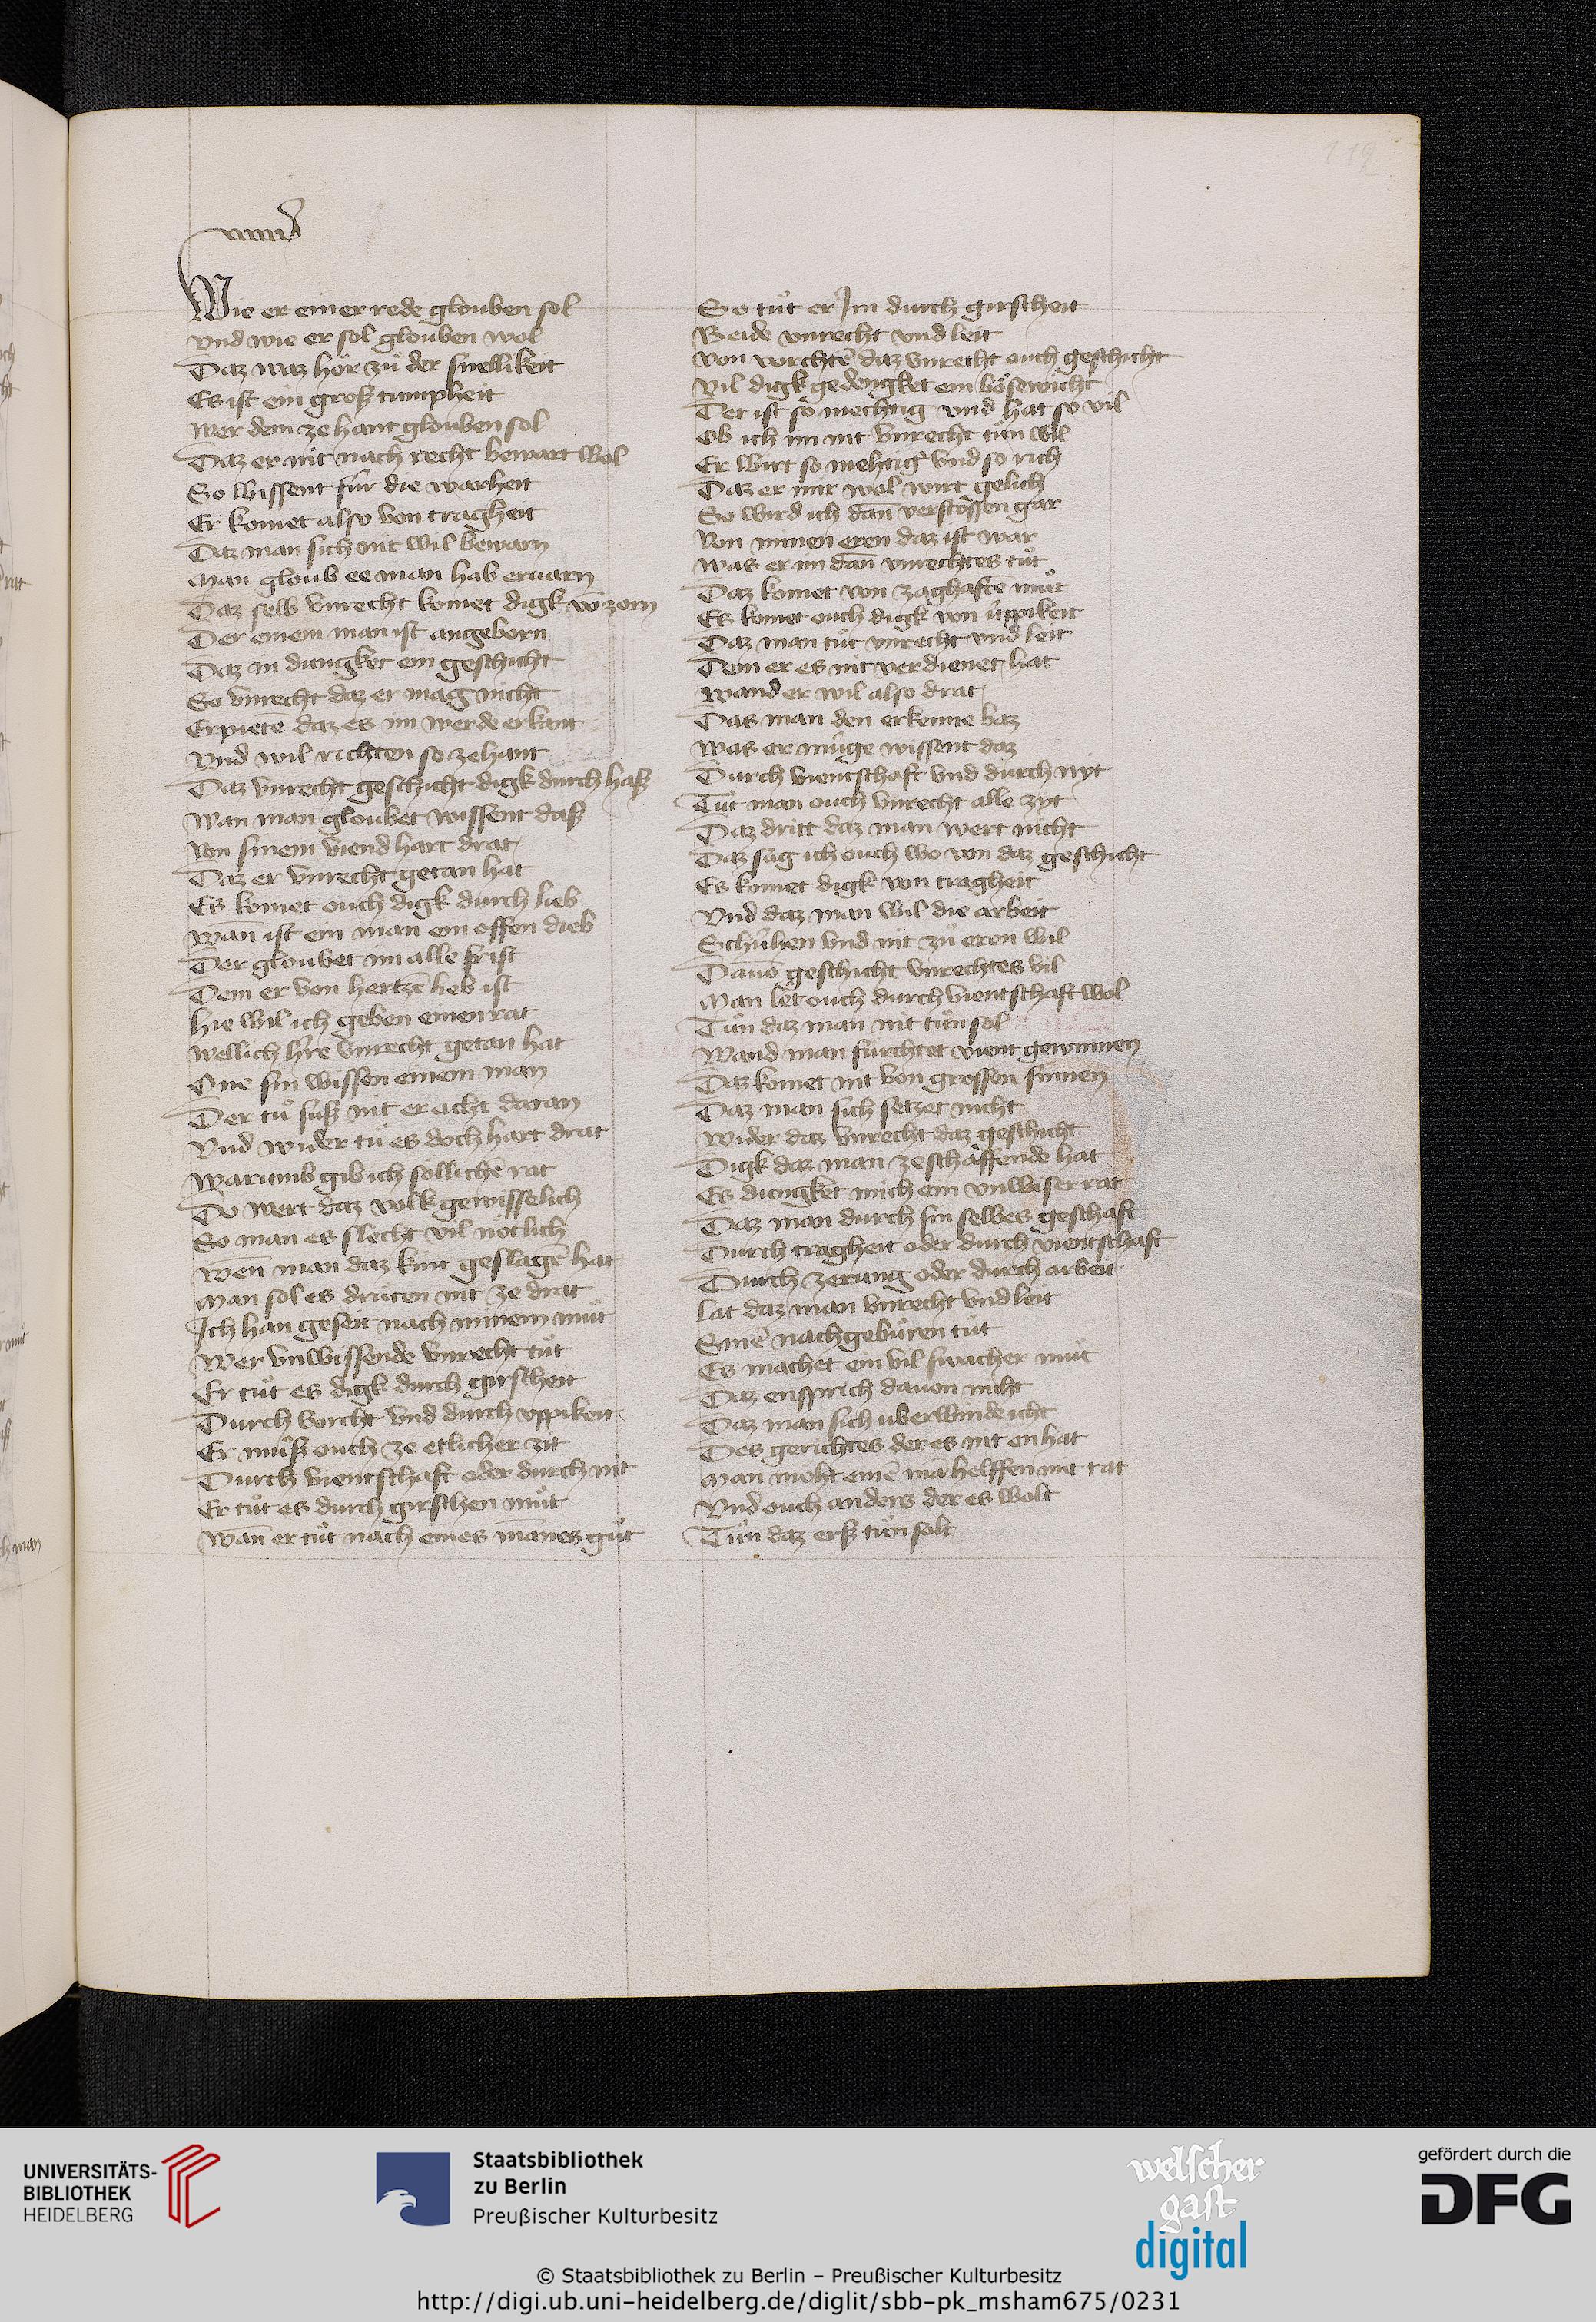 112
Wie er einer rede glouben sol
vnd wie er sol glouben wol
Daz waz hör zů der snellikeit
Es ist ein groß tumpheit
wer dem ze hant glouben sol
Daz er nit nach recht bewart wol
So wissent für die warheit
Er komet also von tragheit
Daz man sich nit wil bewarn
Man gloub ee man hab eruarn
Daz selb vnrecht komet digk vō zorn
Der einem man ist angeborn
Daz in dungket ein geschicht
So vnrecht daz er mag nicht
daz es im werde erkant
Vnd wil richten so zehant
Daz vnrecht geschicht digk durch haß
Wan man gloubet wissent daß
Von sinem viend hart drat
Daz er vnrecht getan hat
Es komet ouch digk durch lieb
wan ist ein man ein offen dieb
Der gloubet im alle frist
Dem er von hertzē lieb ist
hie wil ich geben einen rat
wellich h're vnrecht getan hat
One sin wissen einem man
Der tů suß nit er acht daran
Vnd wider tů es doch hart drat
warumb gib ich söllichē rat
Do wert daz volk gewisselich
So man es slecht vil nötlich
wen̄ man daz kint geslagē hat
Man sol es drüten nit ze drat
Ich han geseit nach minem můt
Wer vnwissende vnrecht tůt
Er tůt es digk durch girscheit
Durch vorcht vnd durch vppikeit
Er můß ouch ze etlicher zit
Durch vientschaft oder durch nit
Er tůt es durch girschen můt
wan̄ er tůt nach eines mānes gůt
So tůt er Jm durch girscheit
Beide vnrecht vnd leit
von vorchtē daz vnrecht ouch geschicht
vil digk gedengket ein bösewicht
Der ist so mechtig vnd hat so vil
Ob ich im nit vnrecht tůn wil
Er wirt so mehtig vnd so rich
Daz er mir wol wirt gelich
So wird ich dan̄ verstössen gar
Von minen eren daz ist war
was er im dan̄ vnrechtes tůt
Daz komet von zaghaftē můt
Es komet ouch digk von üppikeit
Daz man tůt vnrecht vnd leit
Dem er es nit verdienet hat
wand er wil also drat
Das man den erkenne baz
was er müge wissent daz
Durch vientschaft vnd durch nyt
Tůt man ouch vnrecht alle zyt
Daz dritt daz man wert nicht
Daz sag ich ouch wo von daz geschicht
Es komet digk von tragheit
Vnd daz man wil die arbeit
Schühen vnd nit zů eren wil
Dauō geschicht vnrechtes vil
Man let ouch durch vientschaft wol
Tůn daz man nit tůn sol
Wand man fürchtet vient gewinnen
Daz komet nit von grossen sinnen
Daz man sich setzet nicht
Wider daz vnrecht daz geschicht
Digk daz man ze schaffende hat
Es dungket mich ein vnwiser rat
Daz man durch sin selbes geschaft
Durch tragheit oder durch vientschaft
Durch zerung oder durch arbeit
Lat daz man vnrecht vnd leit
Sinē nachgebůren tůt
Es machet ein vil swacher můt
Daz ensprich dauon nicht
Daz man sich uberwinde icht
Des gerichtes der es nit enhat
Man möht einē mā helffen mit rat
Vnd ouch anders der es wolt
Tůn daz erß tůn solt
UNIVERSITÄTS-
BIBLIOTHEK
HEIDELBERG
Staatsbibliothek
zu Berlin
Preußischer Kulturbesitz
welscher
gast
digital
gefördert durch die
DFG
© Staatsbibliothek zu Berlin – Preußischer Kulturbesitz
http://digi.ub.uni-heidelberg.de/diglit/sbb-pk_msham675/0231